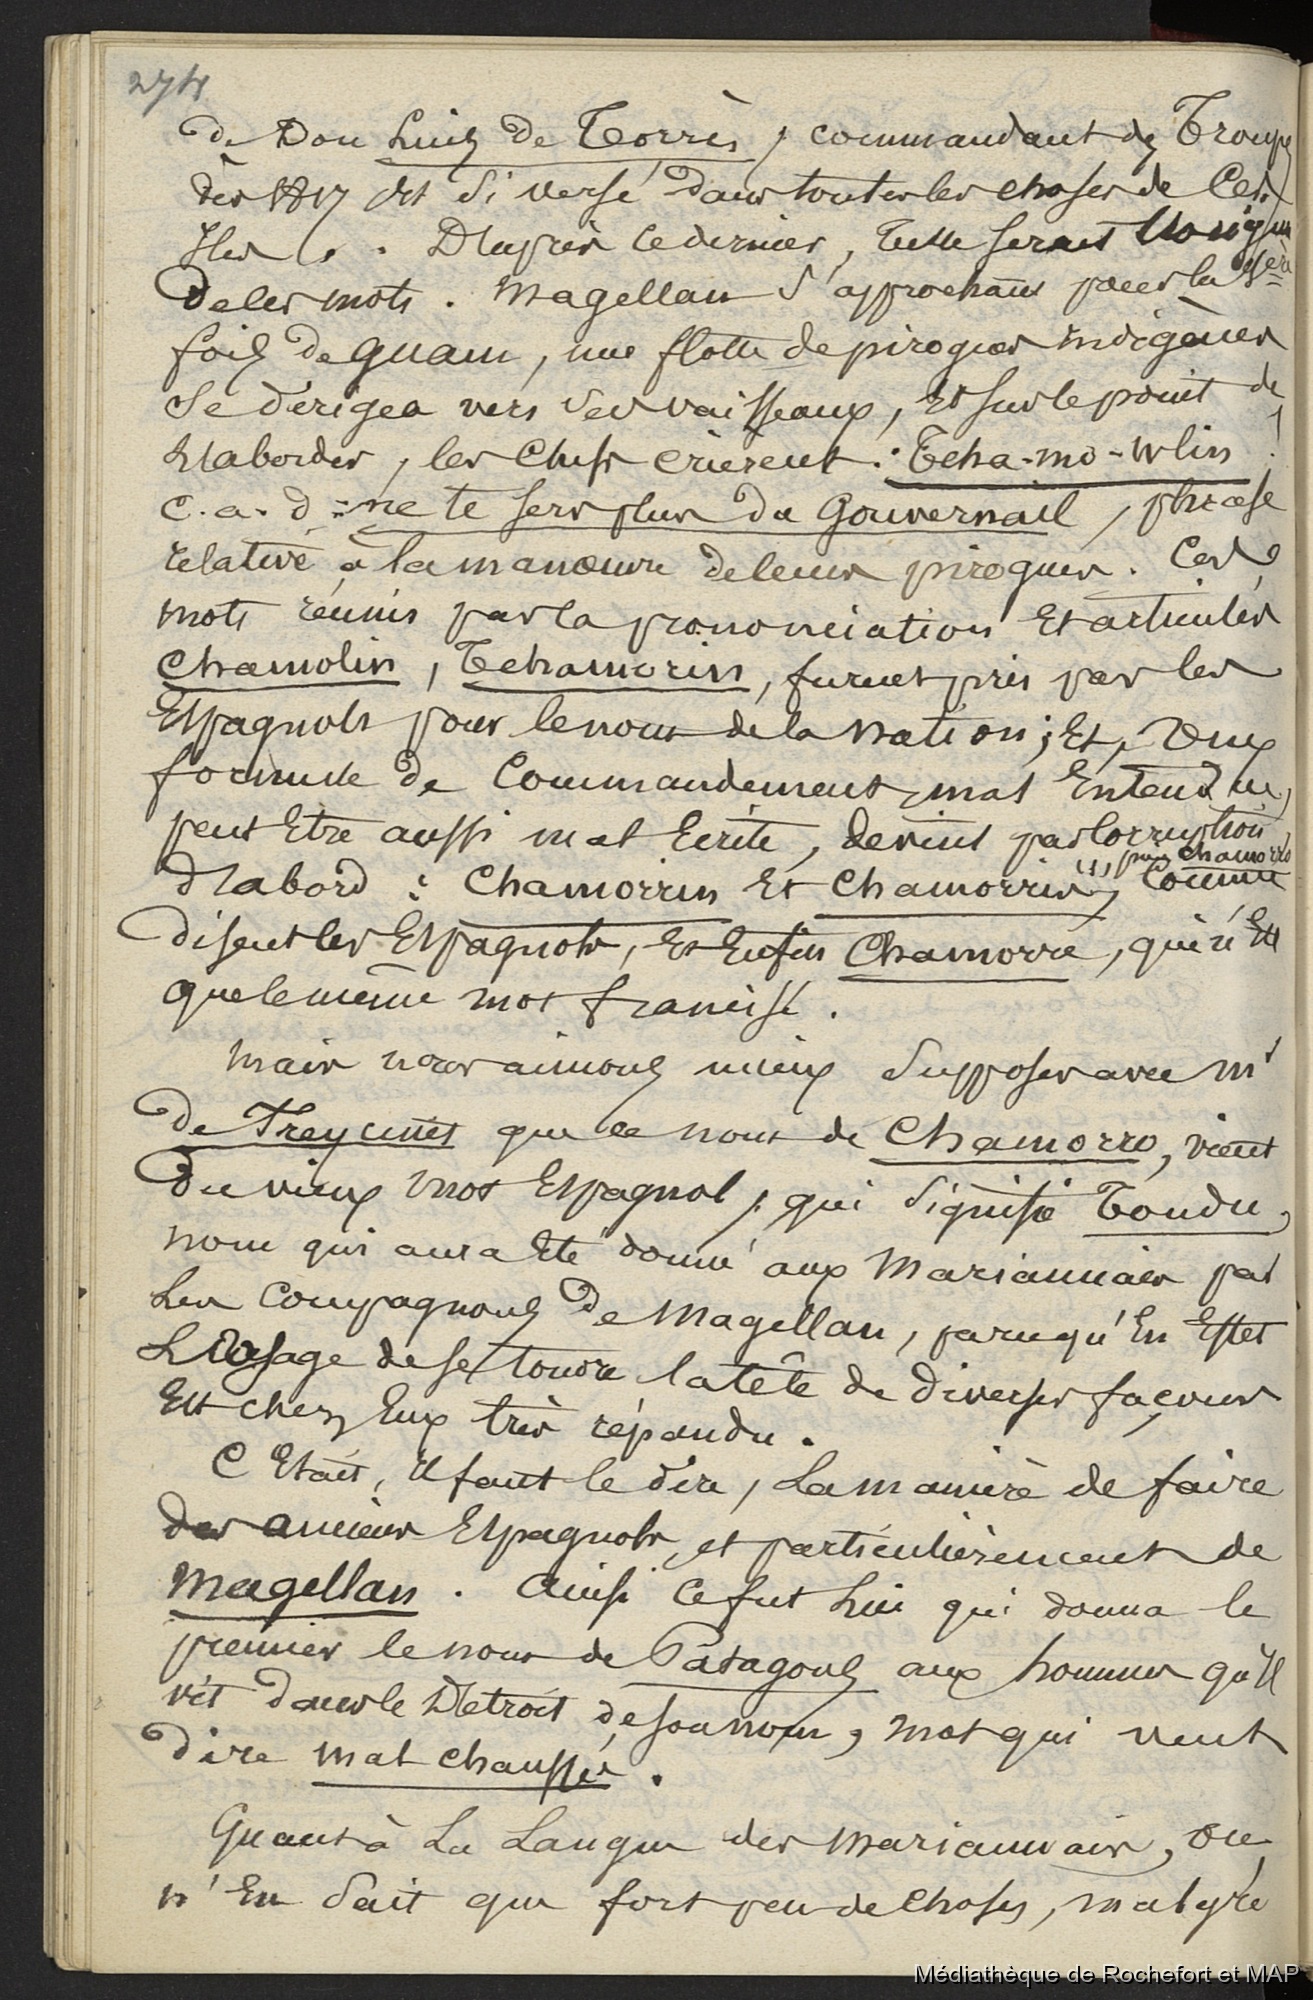 274
de Don Luis de Torrès, commandant des Troupes
dès 1817 et si versé dans toutes les choses de Ces
Iles . . D'après ce dernier, telle serait l'origine
de ces mots. Magellan s'approchant pour la 1ère
fois de Guam, une flotte de pirogues indigènes
se dirigea vers ses vaisseaux, et sur le point de
l'aborder, les Chefs crièrent : Tcha-mo-Wlin !
c.a.d : ne te sers plus du Gouvernail, phrase
relative à la manœuvre de leurs pirogues. Ces
mots réunis par la prononciation et articulés
Chamolin, Tchamorin, furent pris par les
Espagnols pour le nom de la nation ; et, d'une
formule de Commandement, mal Entendue,
peut Etre aussi mal Ecrite, devint par Corruption
d'abord : Chamorrin et Chamorris, puis Chamorro Comme
disent les Espagnols, et Enfin Chamorre, qui n'Est
que le même mot francisé.
Mais nous aimons mieux supposer avec Mr
de Freycinet que le nom de Chamorro, vient
du vieux mot Espagnol, qui signifie Tondu,
nom qui aura Eté donné aux Mariannais par
Les Compagnons de Magellan, parcequ'En Effet
L'Usage de se tondre la tête de diverses façons
Est chez Eux très répandu.
C'Etait, il faut le dire, La manière de faire
des anciens Espagnols, et particulièrement de
Magellan. Ainsi ce fut Lui qui donna le
premier le nom de Patagons aux hommes qu'Il
vit dans le Détroit de son nom, mot qui veut
dire mal chaussé.
Quant à La Langue des Mariannais, on
n'En sait que fort peu de choses, malgré
Médiathèque de Rochefort et MAP